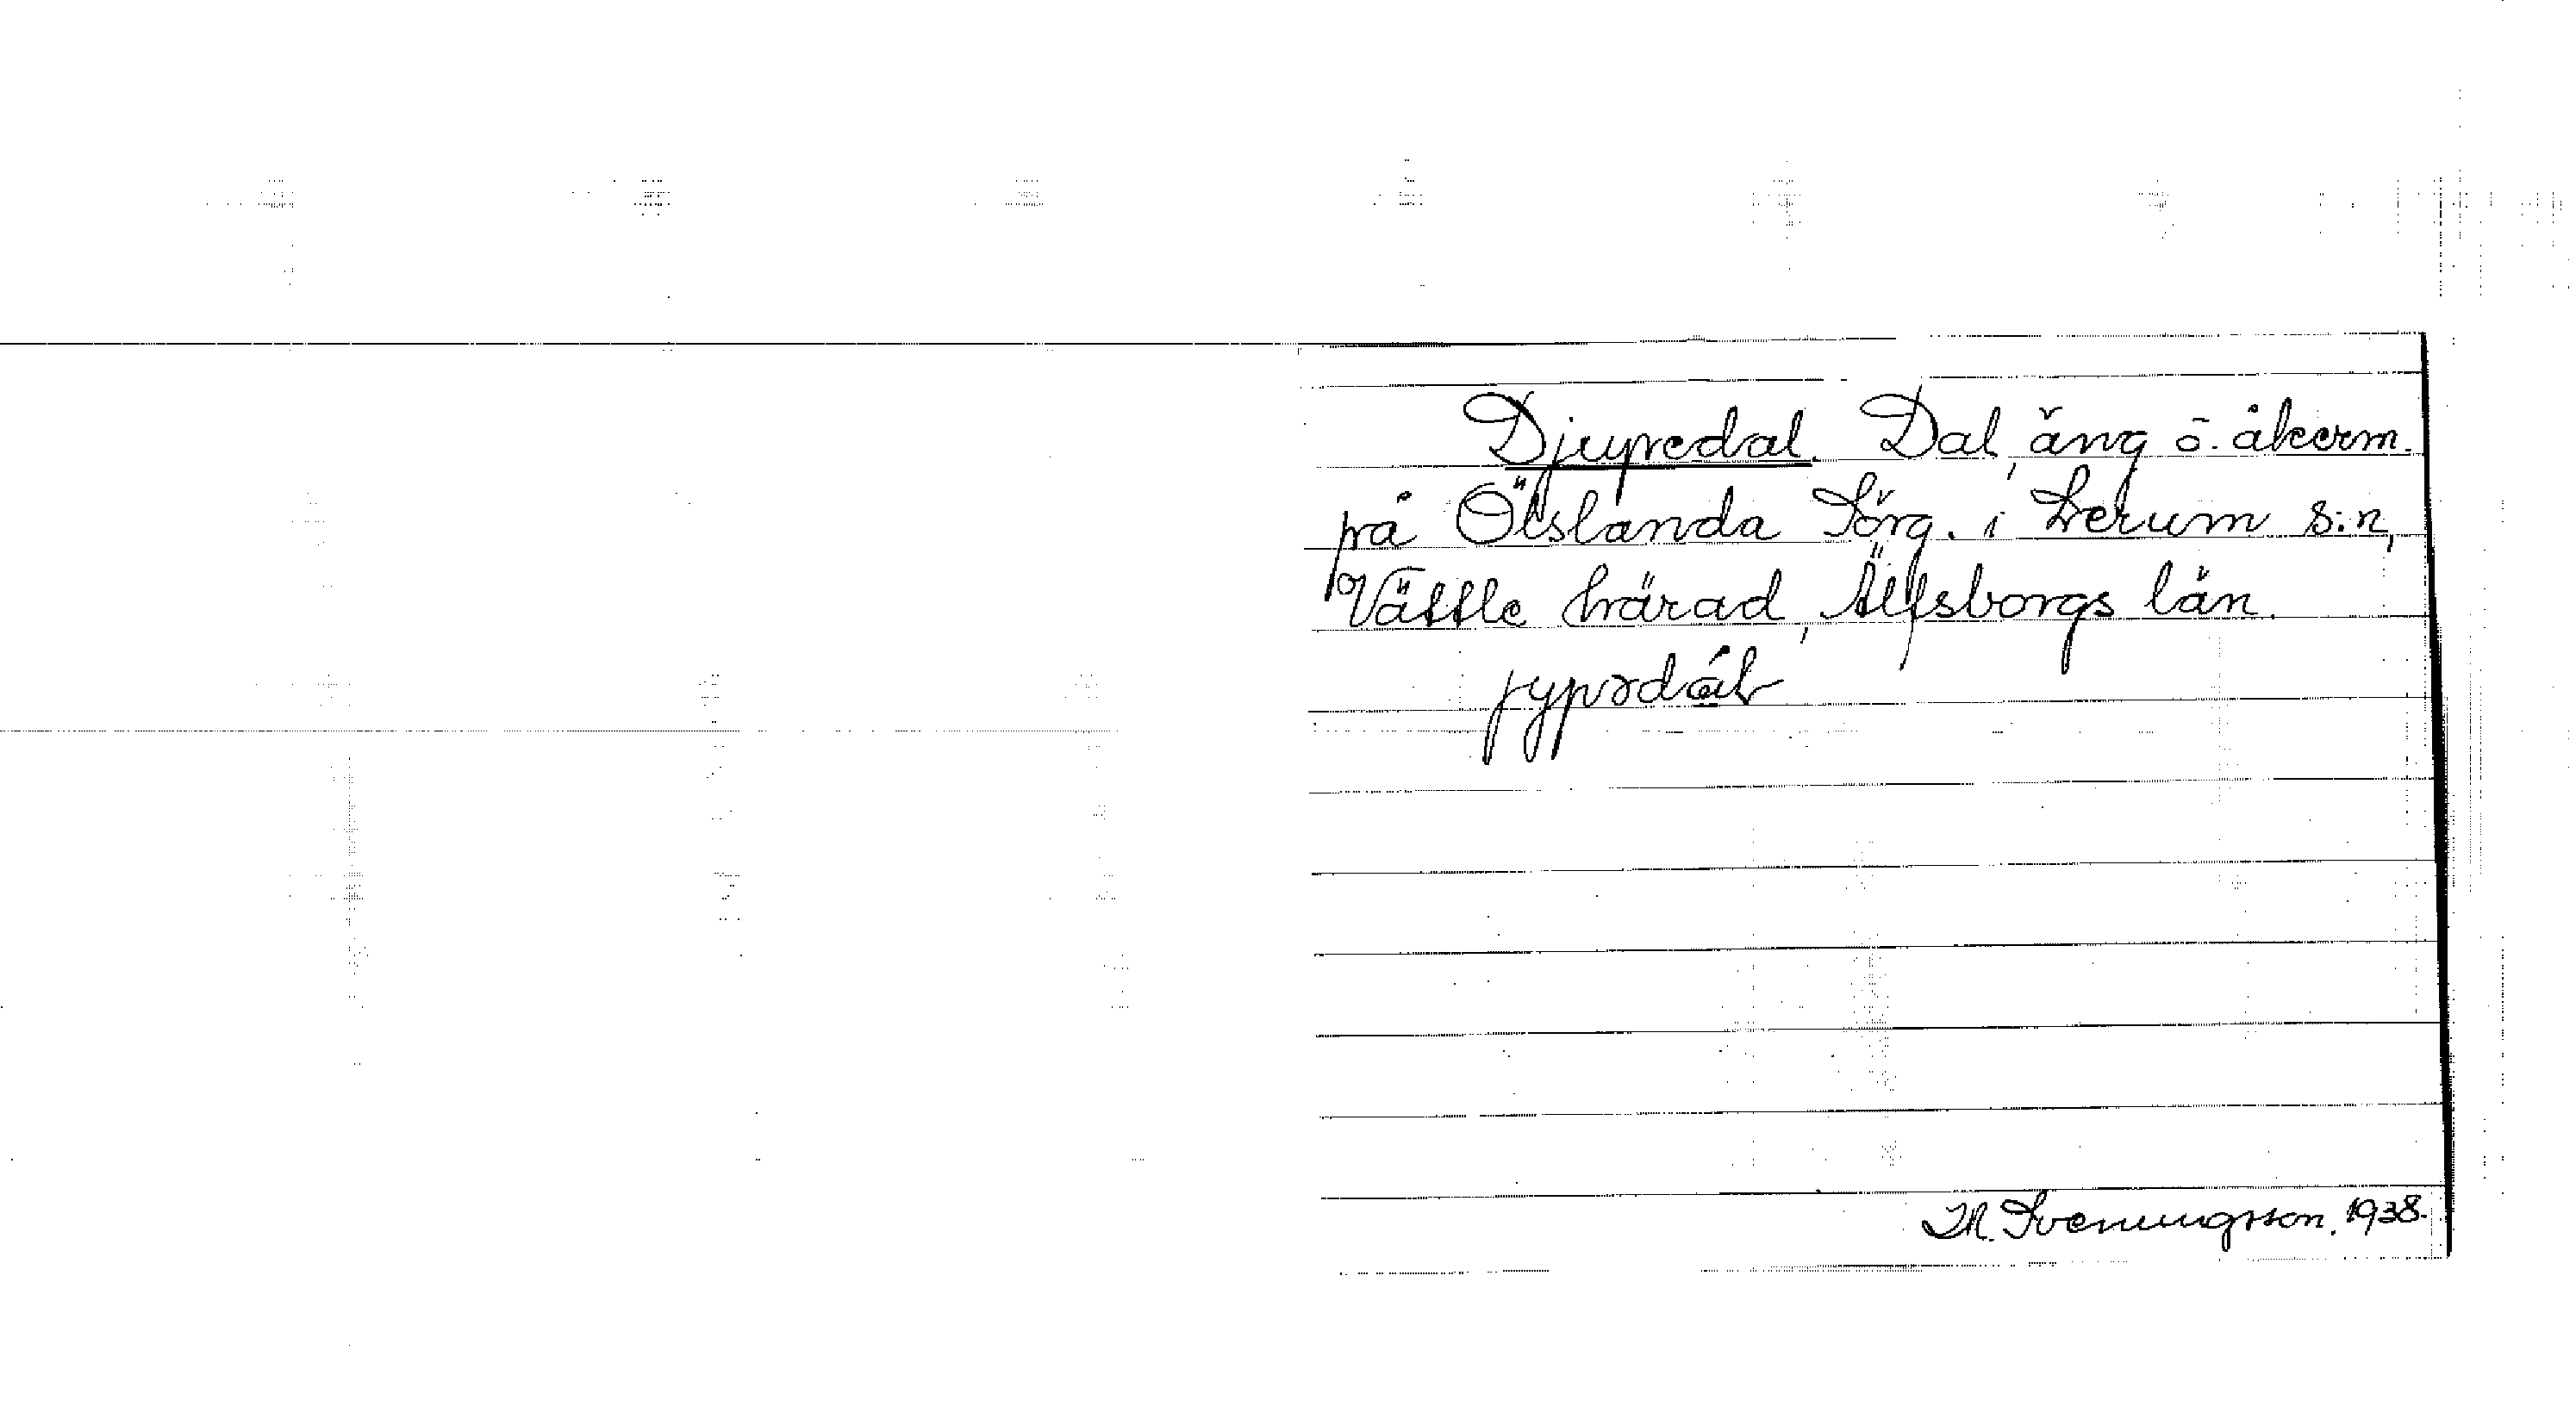 Djupedal. Dal, äng o. åkerm.
på Ölslanda Sörg. i Lerum s:n,
Vättle härad, Älfsborgs län.
Sveningsson. 1938.